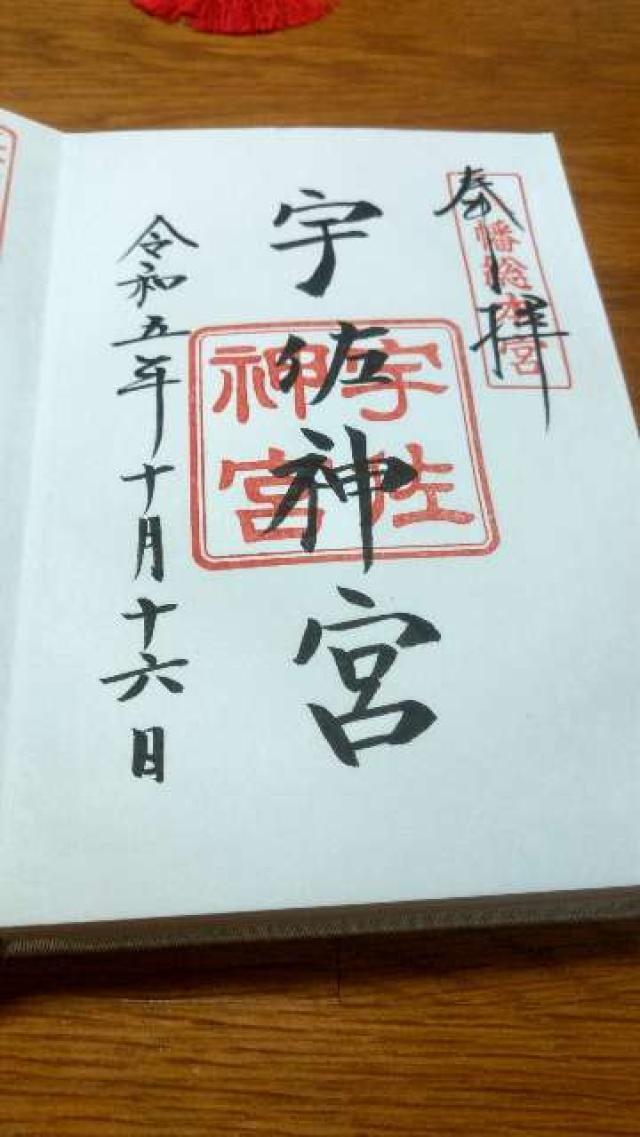 奉拝
八幡総本宮
宇佐神宮
宇佐
神宮
令和五年十月十六日